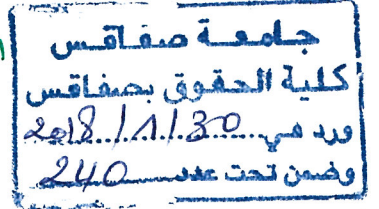 جامعة صفاقس
كلية الحقوق بصفاقس
ورد في 2018/1/30
وضمن تحت عدد 240